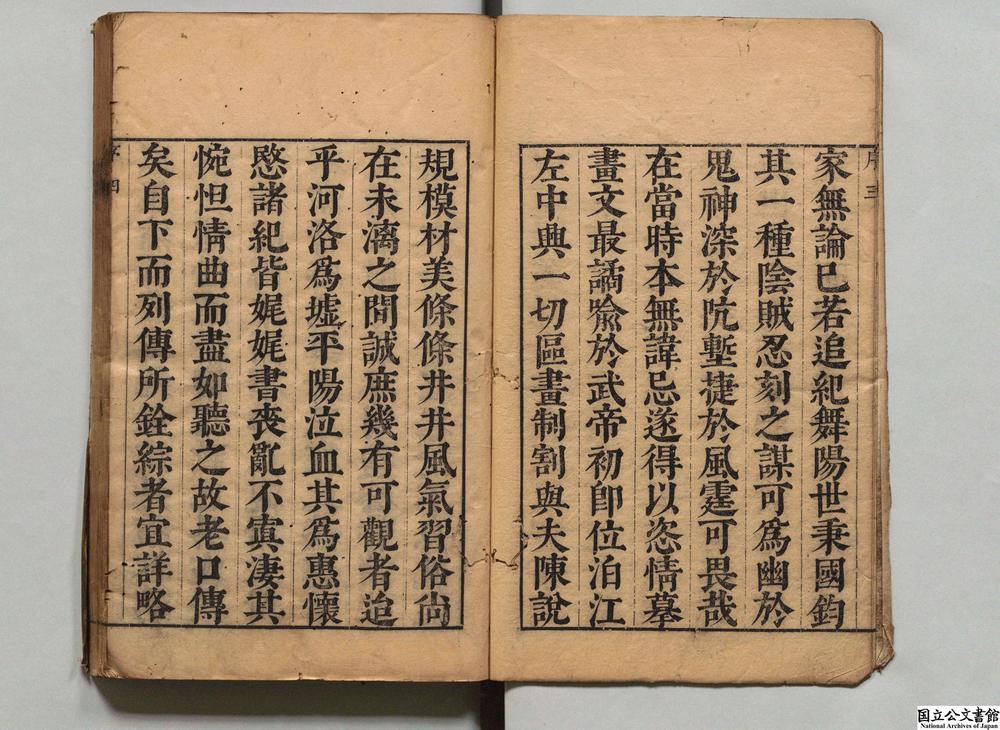 序 三
家無論已若追紀舞陽世秉國鈞
其一種陰賊忍刻之謀可爲幽於
鬼神深於阬塹捷於風霆可畏哉
在當時本無諱忌遂得以恣情摹
畫文最譎隃於武帝初卽位泊江
左中興一切區畫制割與夫陳說
規模材美條條井井風氣習俗尙
在未漓之間誠庶幾有可觀者迨
乎河洛爲墟平陽泣血其爲惠懷
愍諸紀皆娓娓書喪亂不寘淒其
惋怛情曲而盡如聽之故老口傳
矣自下而列傳所銓綜者宜詳略
序 四
国立公文書館
National Archives of Japan